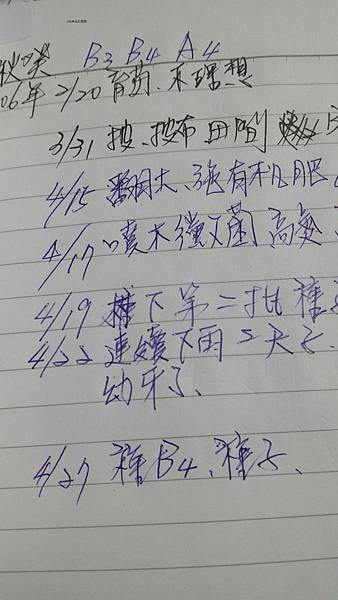 秋葵 B3 B4 A4
06年 2/20 育苗、不理想
3/31 披、披布 田間
4/15 翻土、強有机肥
4/17 噴木黴菌 高
4/19 播下第二批種子
4/22 連續下雨2天了、
幼牙了、
4/27 種B4、種子、